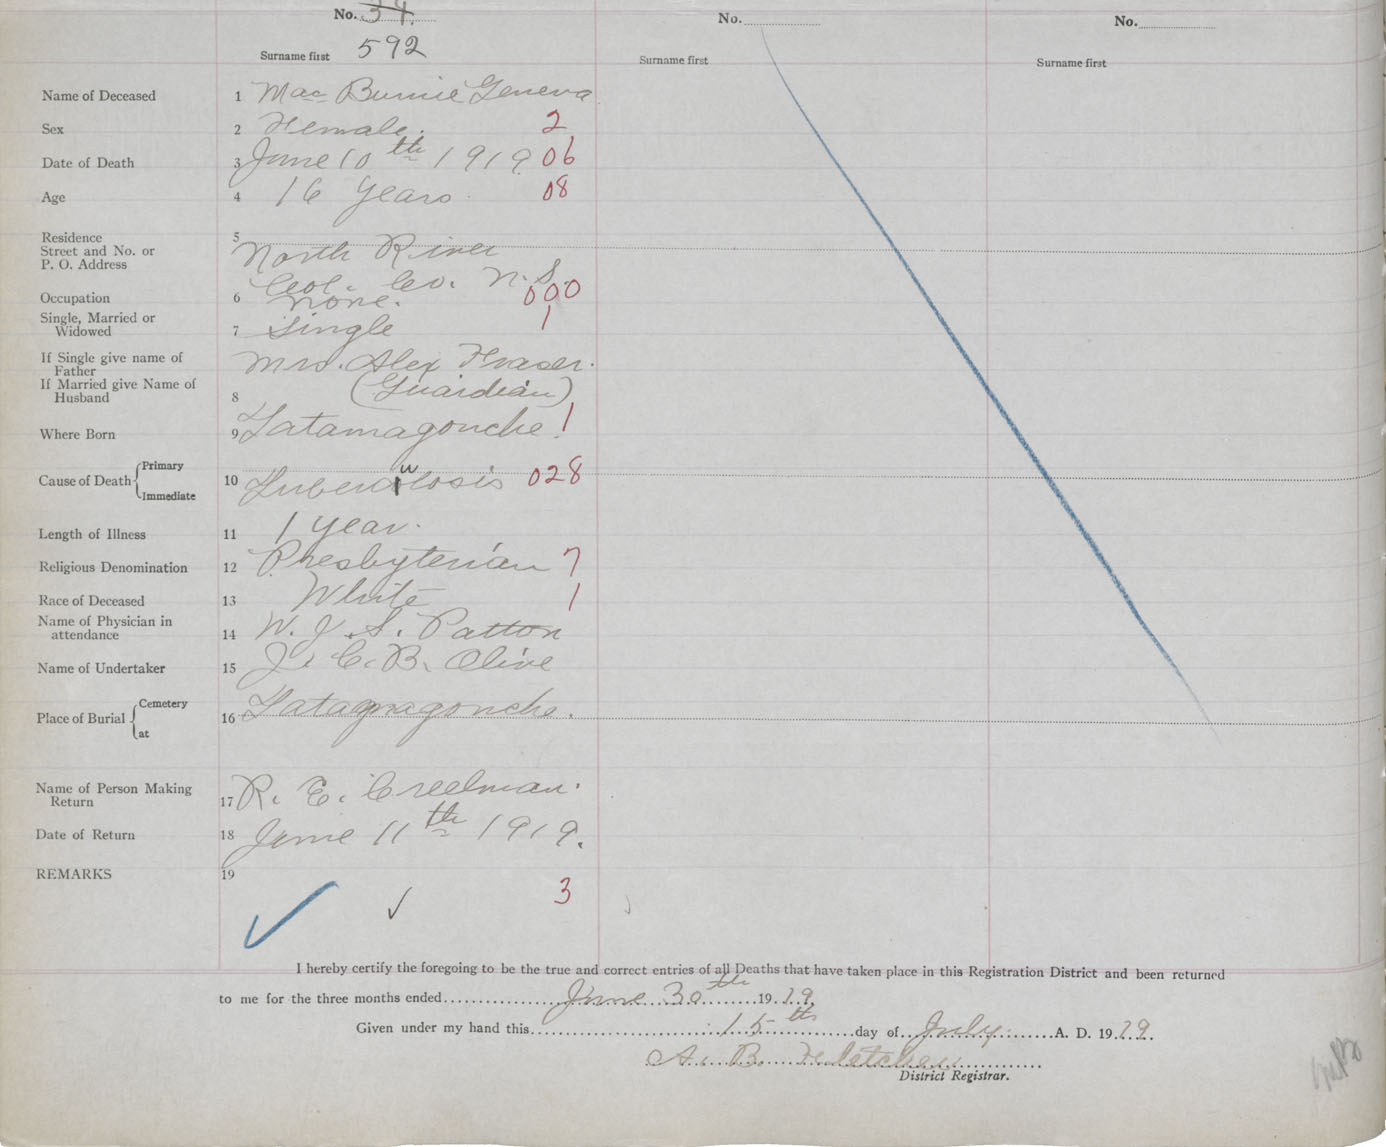 No. 34. No. No.
Surname first 592 Surname first Surname first
Name of Deceased 1 Mac Burnie Geneva
Sex 2 Female. 2
Date of Death 3 June 10th 1919 06
Age 4 16 Years. 08
Residence 5
Street and No. or North River
P. O. Address Col. Co. N.S.
Occupation 6 none. 000
Single, Married or
Widowed 7 Single 1
If Single give name of Mrs. Alex Fraser.
Father
If Married give Name of (Guardian)
Husband 8
Where Born 9 Tatamagouche. 1
Cause of Death Primary
10 Tuberculosis 028
Immediate
Length of Illness 11 1 year.
Religious Denomination 12 Presbyterian 7
Race of Deceased 13 White 1
Name of Physician in
attendance 14 W. J. S. Patton
Name of Undertaker 15 J. C. B. Olive
Place of Burial Cemetery
16 Tatagmagouche.
at
Name of Person Making
Return 17 R. E. Creelman.
Date of Return 18 June 11th 1919.
REMARKS 19
3
I hereby certify the foregoing to be the true and correct entries of all Deaths that have taken place in this Registration District and been returned
to me for the three months ended June 30th 1919.
Given under my hand this 15th day of July A. D. 1919.
A. B. Fletcher
District Registrar.